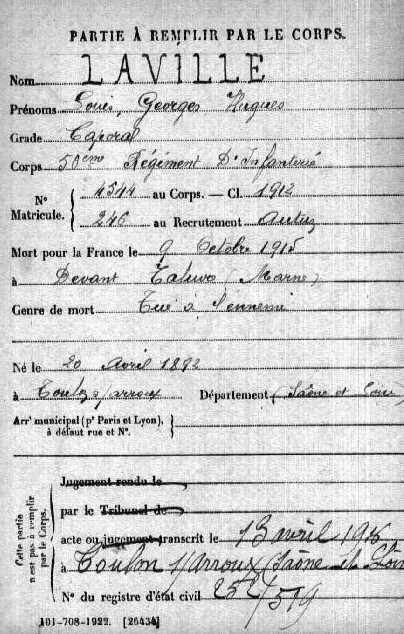 PARTIE À REMPLIR PAR LE CORPS.
Nom LAVILLE
Prénoms Louis, Georges Hugues
Grade Caporal
Corps 56eme Régiment D'Infanterie
N° Matricule. { 4544 au Corps. — Cl. 1912
246 au Recrutement Autun
Mort pour la France le 9 Octobre 1915
à Devant Tahure (Marne)
Genre de mort Tué à l'ennemi
Né le 20 Avril 1892
à Toulon s/arroux Département (Saône et Loire)
Arrt municipal (pr Paris et Lyon), à défaut rue et N°. {
Cette partie n'est pas à remplir par le Corps.
Jugement rendu le
par le Tribunal de
acte ou jugement transcrit le 13 avril 1916
à Toulon s/Arroux (Saône et Loir
N° du registre d'état civil
101-708-1922. [26434]